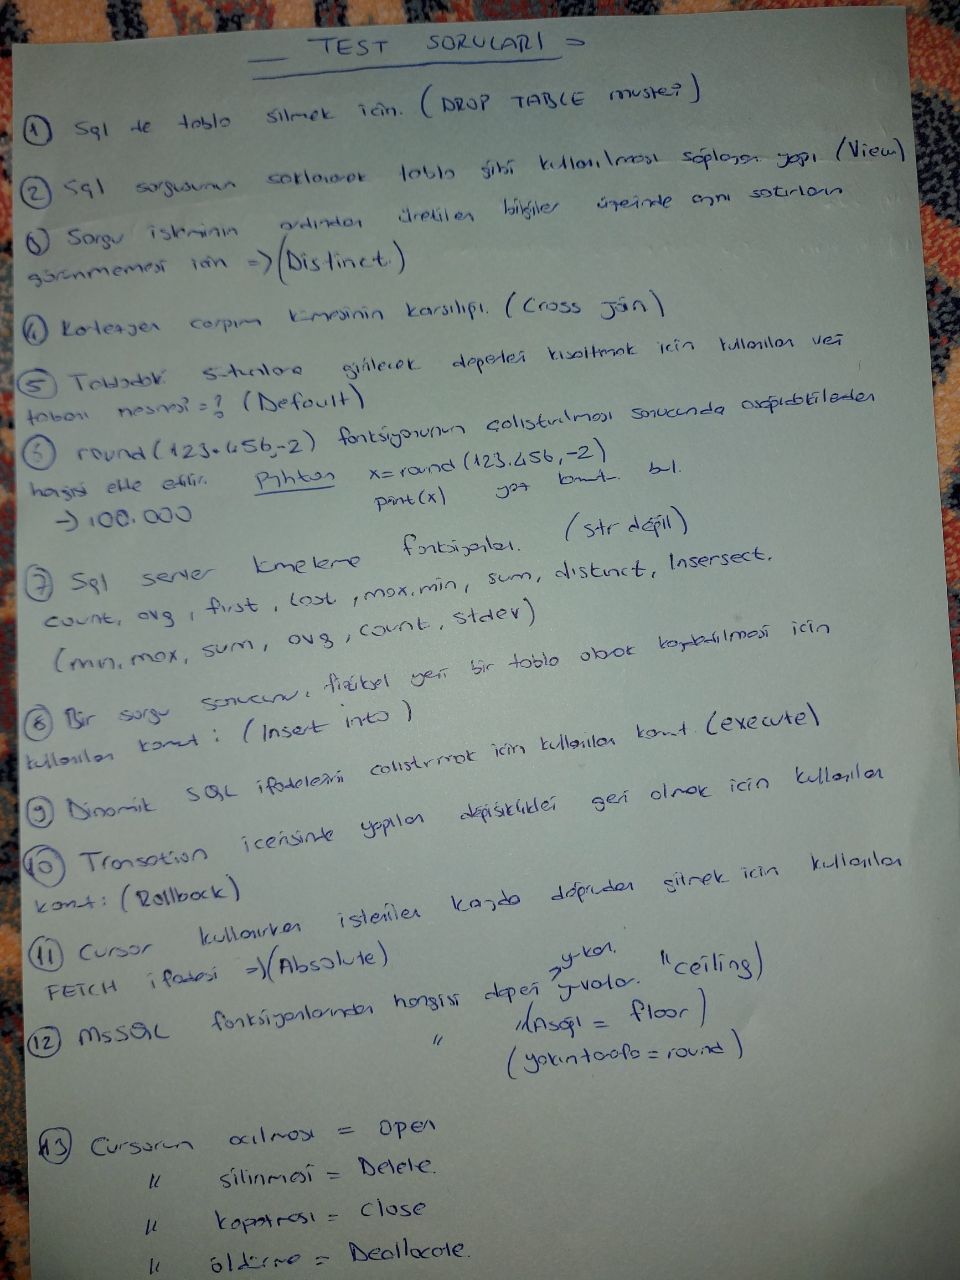 TEST SORULARI
1 Sql de tablo silmek için. (DROP TABLE musteri)
2 Sql sorgusunun saklanarak tablo gibi kullanılması sağlayan yapı (View)
3 Sorgu işleminin ardından üretilen bilgiler üzerinde aynı satırların
görünmemesi için => (Distinct.)
4 Kartezyen çarpım kümesinin karşılığı. (Cross join)
5 Tablodaki sütunlara girilecek değerleri kısaltmak için kullanılan veri
tabanı nesnesi = ? (Default)
6 round(123.456,-2) fonksiyonunun çalıştırılması sonucunda aşağıdakilerden
hangisi elde edilir. Pihton x=round(123.456,-2)
→ 100.000 print(x) yaz bul.
7 Sql server kümeleme fonksiyonları. (str değil)
count, avg, first, last, max, min, sum, distinct, Insersect.
(min, max, sum, avg, count, stdev)
8 Bir sorgu sonucunu, fiziksel yeni bir tablo olarak kaydedilmesi için
kullanılan komut : (Insert into)
9 Dinamik SQL ifadelerini calıstırmak icin kullanılan komut (execute)
10 Transaction icerisinde yapılan değişiklikleri geri almak icin kullanılan
komut : (Rollback)
11 Cursor kullanırken istenilen kayda doğrudan gitmek icin kullanılan
FETCH ifadesi => (Absolute)
y-karı.
12 MsSQL fonksiyonlarından hangisi değeri yuvarlar. "ceiling)
" "(Asağı = floor)
(yakın tarafa = round)
13 Cursorun acılması = open
" silinmesi = Delete.
" kapatması = close
" öldürme = Deallocate.